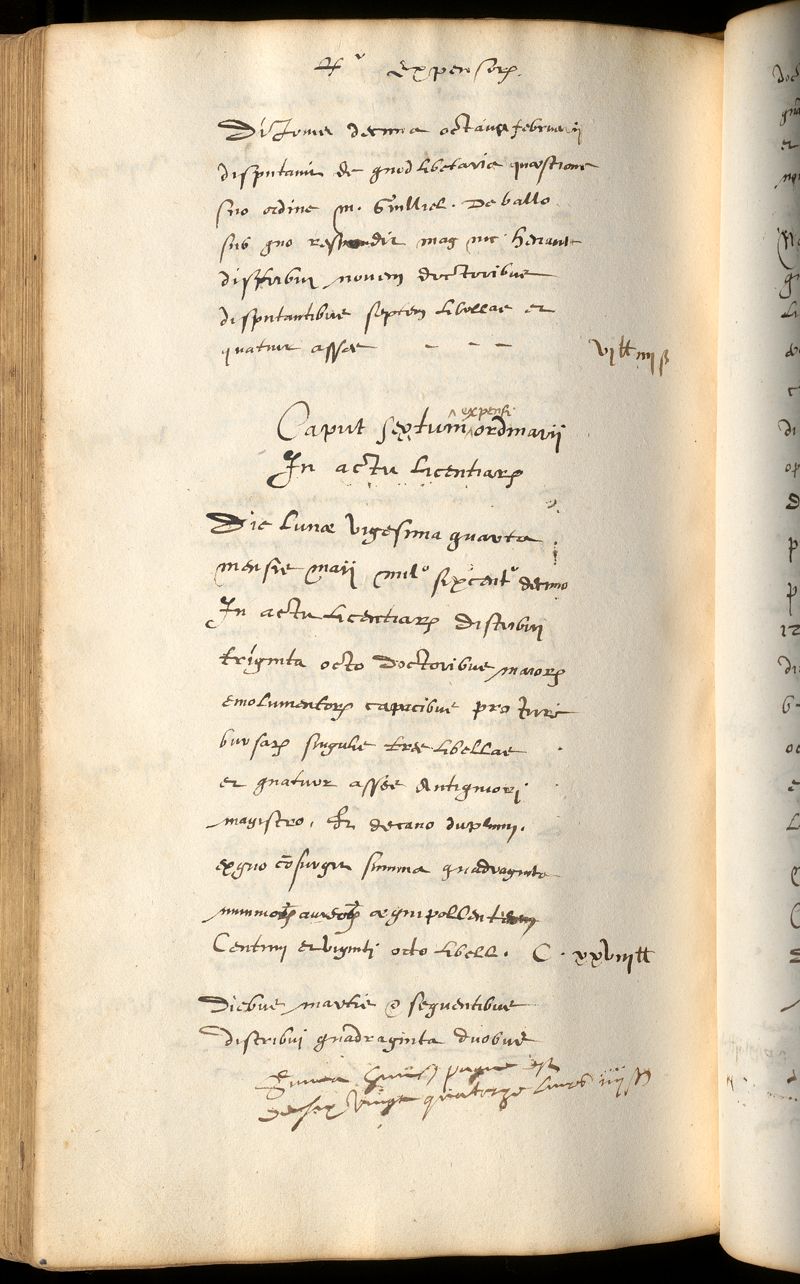 4 v Expensorum
Die Jovis decima octava februarii
disputavit de quodlibetaria quæstione
suo ordine m. Guillel. De ballo
sub quo respondit mag nic henaut
distribui novem doctoribus
disputantibus septem libellas et
quatuor asses - - - vii lt iiii ß
Caput septimum expensi ordinarii
In actu licentiarum
Die Lunæ vigesima quarta
mensis maii milo sixcento decimo
In actu Licentiarum distribui
triginta octo doctoribus maiorum
emolumentorum capacibus pro iure
bursarum singulis tres libellas
et quatuor asses Antiquiori
magistro, et decano duplum.
ex quo cōsurgit summa quadraginta
nummorum aureorum æquipollentem
Centum et viginti octo libell. C. xxviii lt
Diebus martis & sequentibus
distribui quadraginta duobus
Summa huius pagine est
de six vingt quatorze livres iiii ß